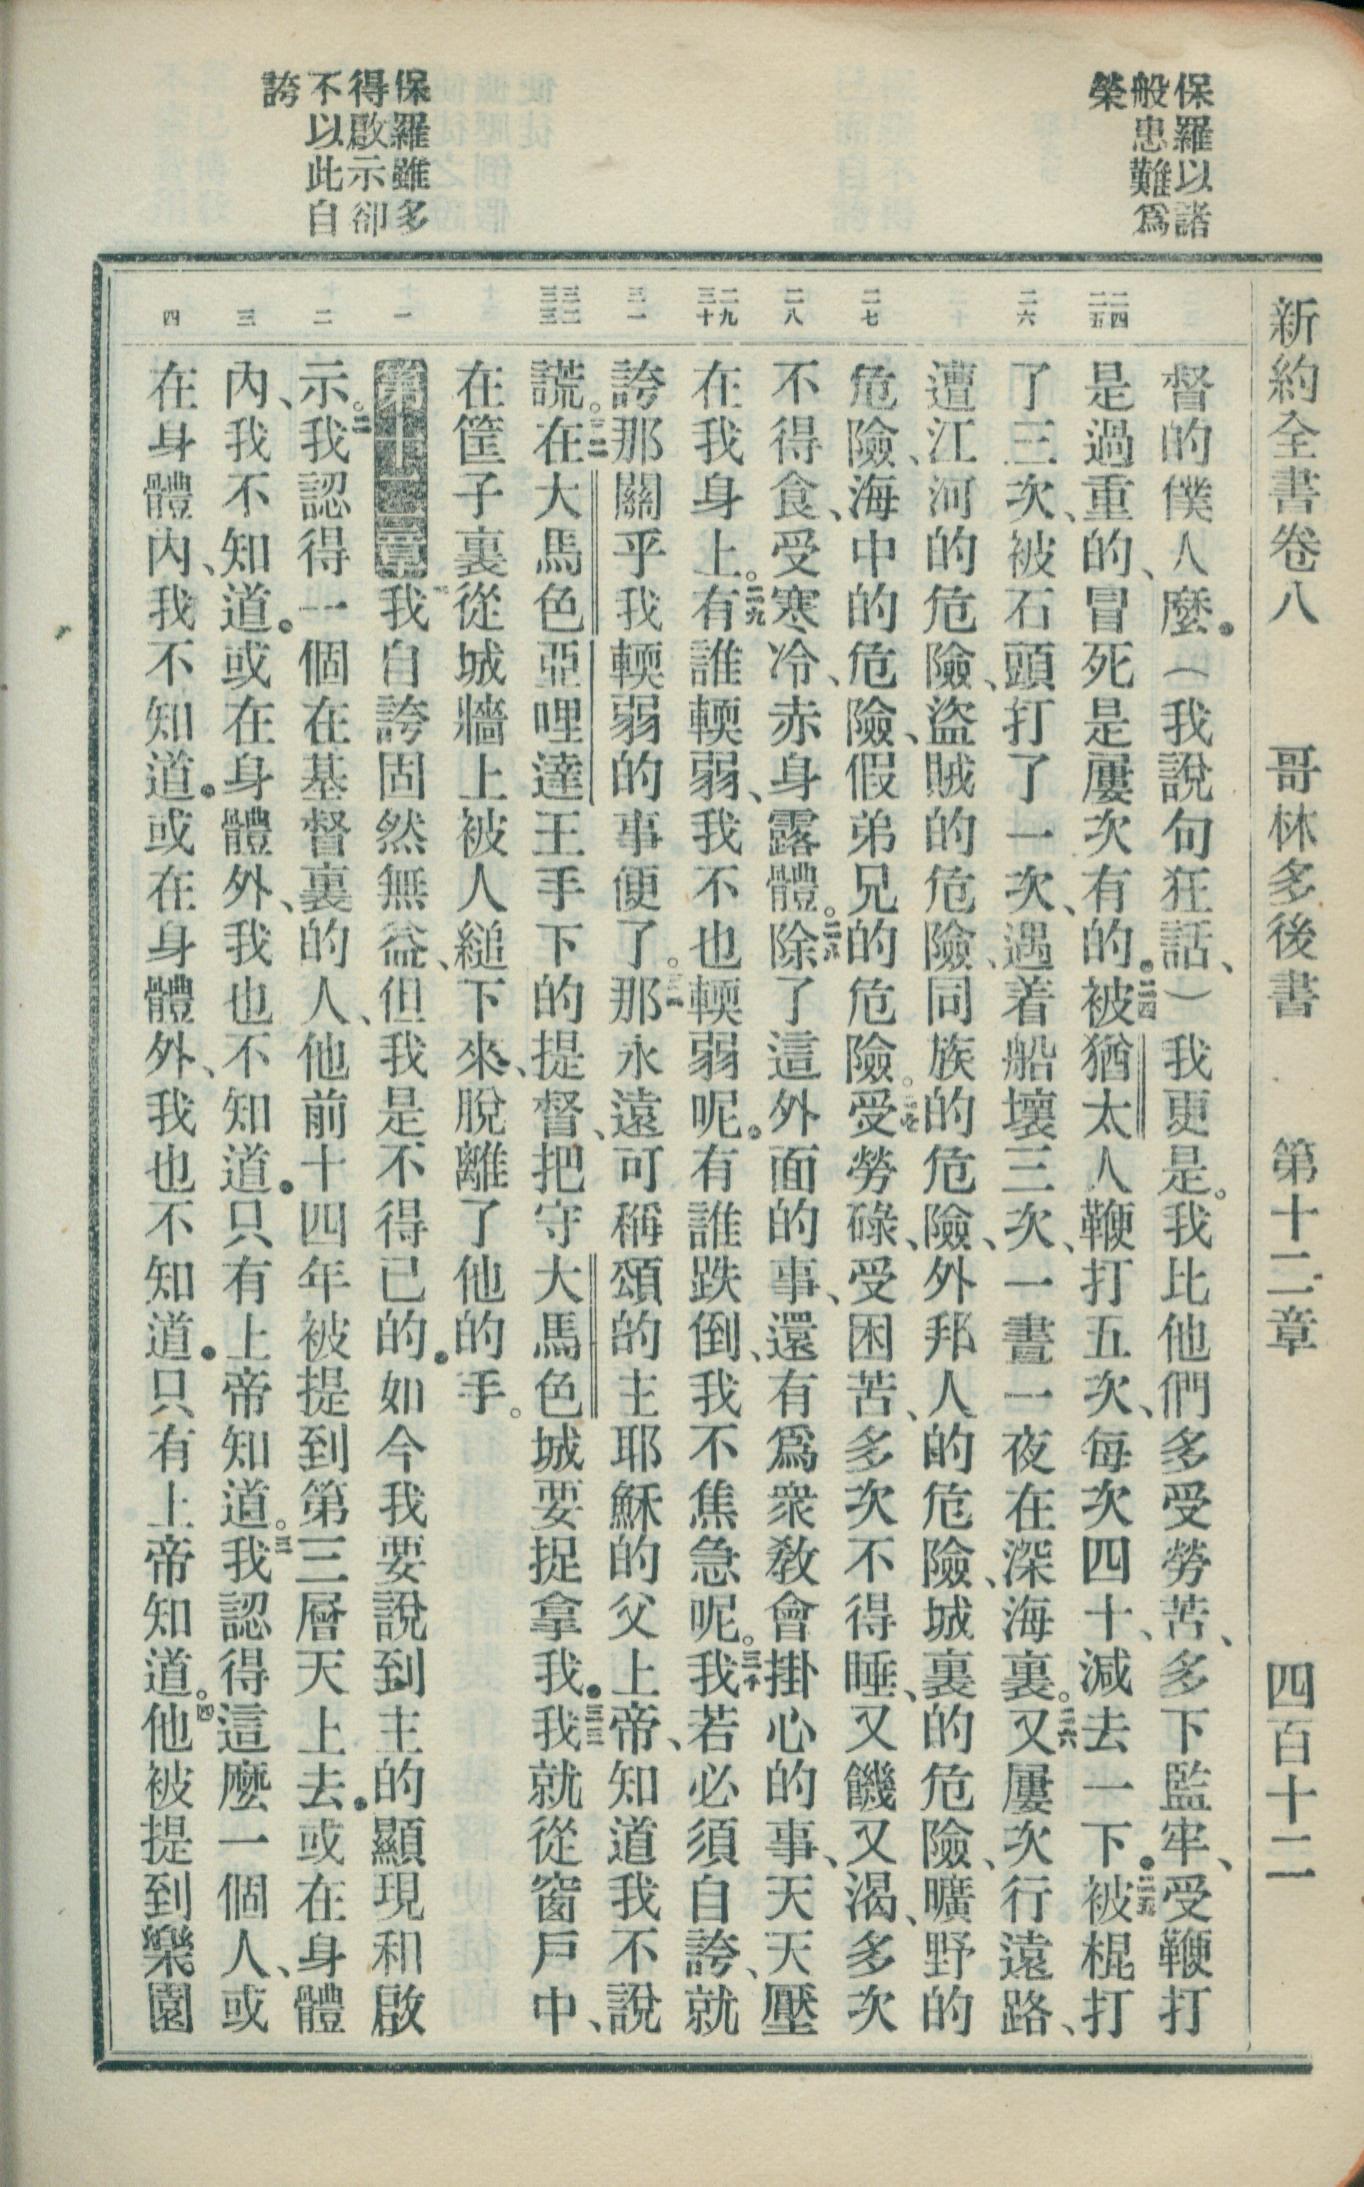 新約全書卷八　哥林多後書　第十二章　四百十二
保羅以諸
般患難爲
榮
保羅雖多
得啟示卻
不以此自
誇
督的僕人麼．（我說句狂話、）我更是。我比他們多受勞苦、多下監牢、受鞭打
是過重的、冒死是屢次有的．二四被猶太人鞭打五次、每次四十、減去一下．二五被棍打
了三次、被石頭打了一次、遇着船壞三次、一晝一夜在深海裏。二六又屢次行遠路、
遭江河的危險、盜賊的危險、同族的危險、外邦人的危險、城裏的危險、曠野的
危險、海中的危險、假弟兄的危險。二七受勞碌、受困苦、多次不得睡、又饑又渴、多次
不得食、受寒冷、赤身露體。二八除了這外面的事、還有爲衆敎會掛心的事、天天壓
在我身上。二九有誰輭弱、我不也輭弱呢．有誰跌倒、我不焦急呢。三十我若必須自誇、就
誇那關乎我輭弱的事便了。三一那永遠可稱頌的主耶穌的父上帝、知道我不說
謊。三二在大馬色亞哩達王手下的提督、把守大馬色城要捉拿我．三三我就從窗戶中、
在筐子裏從城牆上被人縋下來、脫離了他的手。
第十二章一我自誇固然無益、但我是不得已的．如今我要說到主的顯現和啟
示。二我認得一個在基督裏的人、他前十四年被提到第三層天上去．或在身體
內、我不知道．或在身體外、我也不知道．只有上帝知道。三我認得這麼一個人、或
在身體內、我不知道．或在身體外、我也不知道．只有上帝知道。四他被提到樂園
二四
二五
二六
二七
二八
二九
三十
三一
三二
三三
一
二
三
四